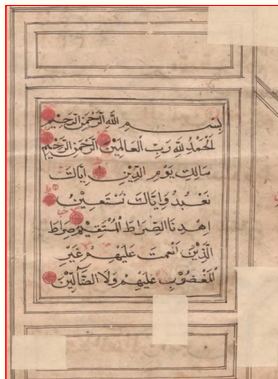 بِسْمِ اللهِ الرَّحْمٰنِ الرَّحِيْمِ
اَلْحَمْدُ لِلّٰهِ رَبِّ الْعَالَمِيْنَ الرَّحْمٰنِ الرَّحِيْمِ
مَالِكِ يَوْمِ الدِّيْنِ اِيَّاكَ
نَعْبُدُ وَاِيَّاكَ نَسْتَعِيْنُ
اِهْدِنَا الصِّرَاطَ الْمُسْتَقِيْمَ صِرَاطَ
الَّذِيْنَ اَنْعَمْتَ عَلَيْهِمْ غَيْرِ
الْمَغْضُوْبِ عَلَيْهِمْ وَلَا الضَّآلِّيْنَ